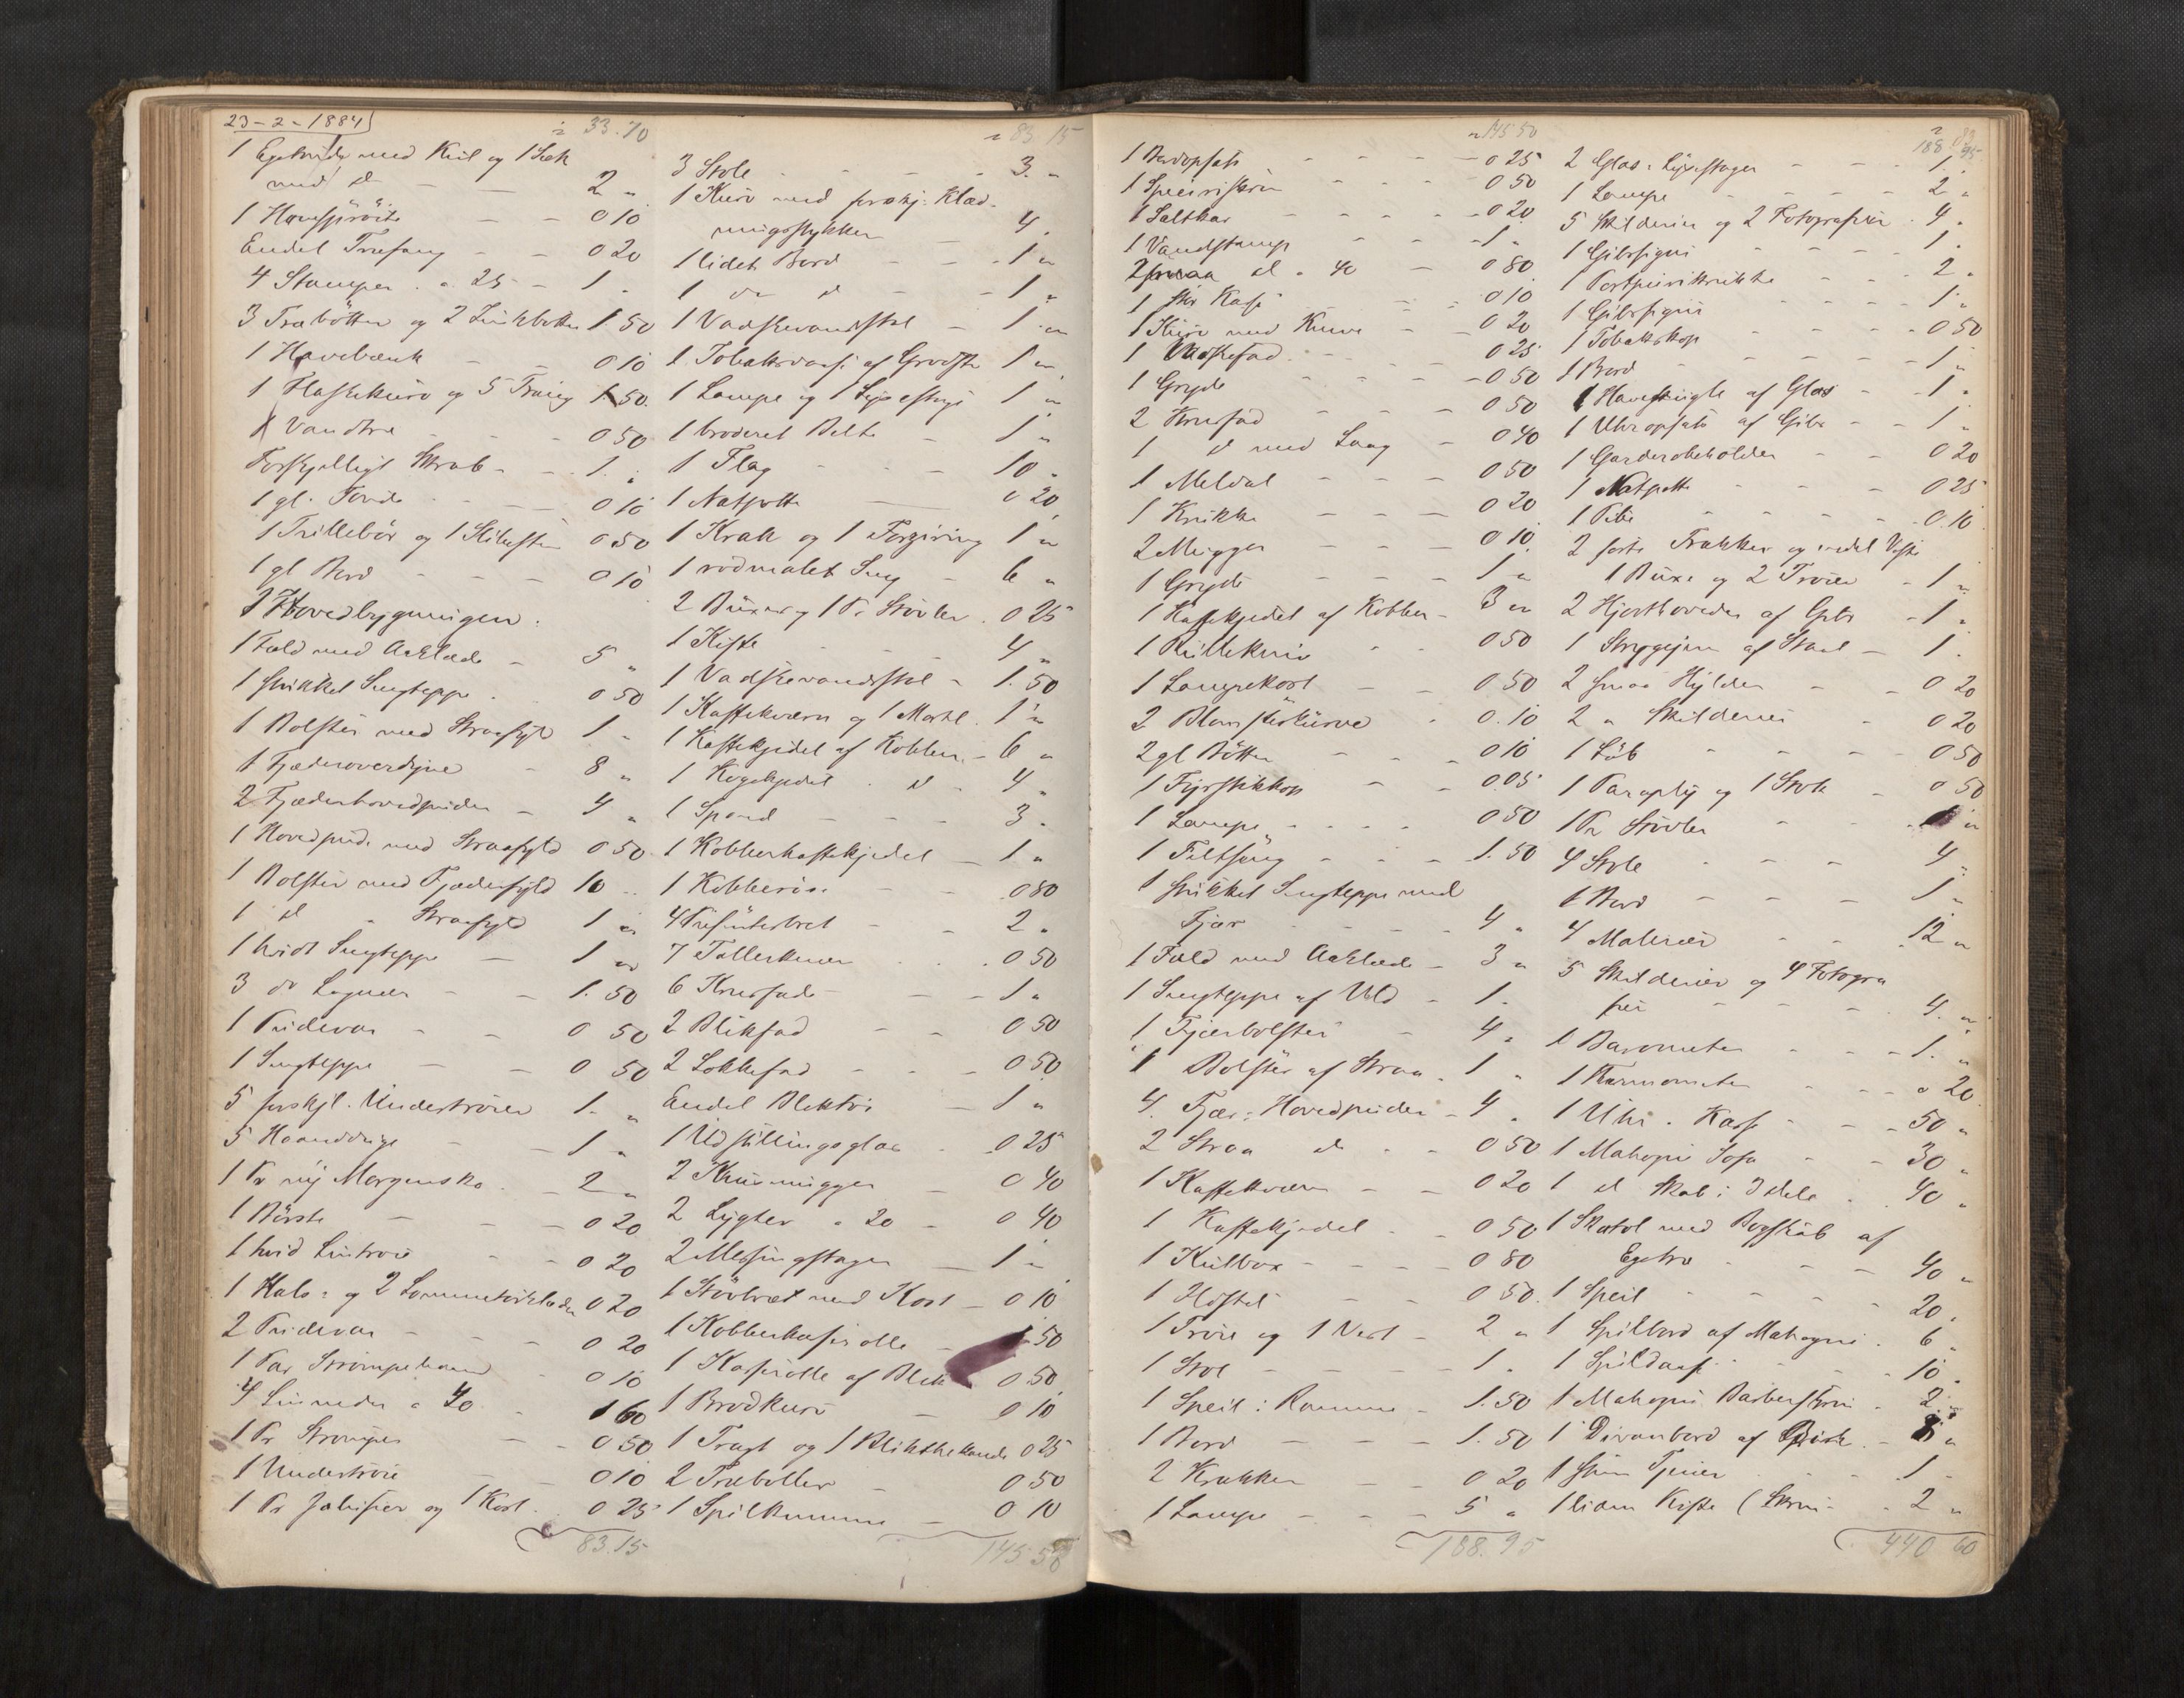 23-2-1884
33.70
1 med Kiil og 1 Sæk
med d° 2 "
1 Havesprøite 0 10
Endel Træfang 0 20
4 Stamper a 25 1 "
3 Træbøtter og 2 Zinkbøtter 1.50
1 Havebænk 0 10
1 Flaskekurv og 5 1.50
1 Vandtræ 0 50
Forskjelligt Skrab 1. "
1 gl. Tønde 0 10
1 Trillebør og 1 Slibesten 0 50
1 gl Bord 0 10
I Hovedbygningen.
1 Fæld med Aaklæde 5 "
1 strikket Sengteppe 0 50
1 Bolster med Straafyld 1 "
1 Fjæderoverdyne 8 "
2 Fjæderhovedpuder 4 "
1 Hovedpude med Straafyld 0 50
1 Bolster med Fjæderfyld 10 "
1 d° " Straafyld 1 "
1 hvidt Sengteppe 1 "
3 do Lagner 1.50
1 Pudevar 0 50
1 Sengteppe 0 50
5 forskjl. Undertrøier 1. "
5 Haanddуge 1 "
1 Pr ny Morgensko 2 "
1 Børste 0 20
1 hvid Lintrøie 0 20
1 Hals- og 2 Lommetørklæder 0 20
2 Pudevar 0 20
1 Par Strømpebaand 0 10
4 a 40 1 60
1 Pr Strømper 0 50
1 Undertrøie 0 10
1 Pr og 1 Kost 0 25
83.15
83 15
3 Stole 3. "
1 Kurv med forskj. Klæd-
ningsstykker 4.
1 lidet Bord 1 "
1 do d° 1 "
1 Vadskevandsstol 1 "
1 Tobaksdaase af 1 "
1 Lampe og 1 Lysestage 1 "
1 broderet Belte 1 "
1 Flag 10 "
1 Natpotte 0 20
1 Krak og 1 Forgiring 1 "
1 rødmalet Seng 6 "
2 Buxer og 1 Pr Støvler 0 25
1 Kiste 4 "
1 Vadskevandsstol 1.50
1 Kaffekværn og 1 1 "
1 Kaffekjedel af Kobber 6 "
1 Kogekjedel d° 4 "
1 Spand 3 "
1 Kobberkaffekjedel 1 "
1 Kobberøse 0 80
4 Præsenterbret 2 "
7 Tallerkener 0 50
6 Krusfade 1 "
2 Blikfad 0 50
2 Sokkefad 0 50
Endel Bliktøi 1 "
1 Udstillingsglas 0 25
2 Krusmugger 0 40
2 Lygter a 20 0 40
2 Messingstager 1 "
1 Støvbræt med Kost 0 10
1 Kobberkasserolle 50
1 Kasserolle af Blik 0 50
1 Brødkurv 0 10
1 Tragt og 1 Bliktheekande 0 25
2 Træboller 0 50
1 Spilkumme 0 10
145 50
145 50
1 Bordopsats 0 25
1 Specieriskrin 0 50
1 Saltkar 0 20
1 Vandstamp 1 "
2 smaa d° a 40 0 80
1 stor Kasse 0 10
1 Kurv med Knive 0 20
1 Vadskefad 0 25
1 Gryde 0 50
2 Krusfad 0 50
1 d° med Laag 0 40
1 Meldal 0 50
1 Krukke 0 20
2 Mugger 0 10
1 Gryde 1 "
1 Kaffekjedel af Kobber 3 "
1 Rullekniv 0 50
1 Lampekost 0 50
2 Blomsterkurve 0.10
2 gl Bøtter 0 10
1 Fyrstikkop 0.05
1 Lampe 0 50
1 Feltseng 1.50
1 strikket Sengteppe med
Fjær 4 "
1 Fæld med Aaklæde 3 "
1 Sengteppe af Uld 1.
1 Fjærbolster 4 "
1 Bolster af Straa 1 "
4 Fjær-Hovedpuder 4 "
2 Straa d° 0 50
1 Kaffekværn 0 20
1 Kaffekjedel 0 50
1 Kulbox 0 80
1 0 50
1 Trøie og 1 Vest 2 "
1 Stol 1 "
1 Speil i Ramme 1.50
1 Bord 1.50
2 Krakker 0 20
1 Lampe 5 "
188.95
188 95
2 Glas-Lysestager 1.
1 Lampe 2 "
5 Skilderier og 2 Fotografier 4 "
1 Gibsfigur 1.
1 Portspiirikrukke 2 "
1 Gibsfigur 1 "
1 Tobakskop 0 50
1 Bord 1 "
1 Havekugle af Glas 1 "
1 Uhropsats af Gibs 1 "
1 Garderobeholder 0 20
1 Natpotte 0 25
1 Pibe 0.10
2 sorte Frakker og endel Veste
1 Buxe og 2 Trøier 1 "
2 Hjorthoveder af Gibs 1 "
1 Strygejern af Staal 1.
2 smaa Hylder 0 20
2 " Skilderier 0 20
1 Løb 0 50
1 Paraply og 1 Stok 0 50
1 Pr Støvler "
4 Stole 4 "
1 Bord 1 "
4 Malerier 12 "
5 Skilderier og 4 Fotogra
fier 4. "
1 Barometer 1. "
1 Termometer 0 20
1 Uhr i Kasse 50 "
1 Mahogni Sofa 30 "
1 d° Skab i 3 dele 40 "
1 Skatol med Bogskab af
Egetræ 40 "
1 Speil 20 "
1 Spilbord af Mahogni 6 "
1 Spildaase 10 "
1 Mahogni Barberskrin 2 "
1 Divanbord af Birk "
1 1 "
1 liden Kiste (Skrin 2 "
440 60